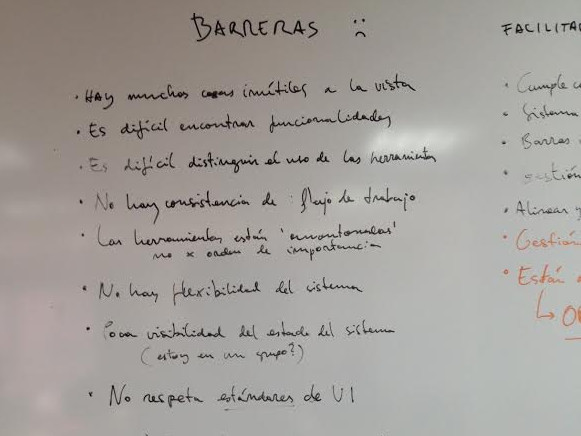 BARRERAS :(
• HAY muchos cosas inútiles a la vista
• Es difícil encontrar funcionalidades
• Es difícil distinguir el uso de las herramientas
• No hay consistencia de flujo de trabajo
• Las herramientas están 'amontonadas'
no x orden de importancia
• No hay flexibilidad del sistema
• Poca visibilidad del estado del sistema
(estoy en un grupo?)
• No respeta estándares de UI
FACILITA
• Cumple c
• Sistema
• Barras
• Gestión
• Alinear y
• Gestión
• Están
↳